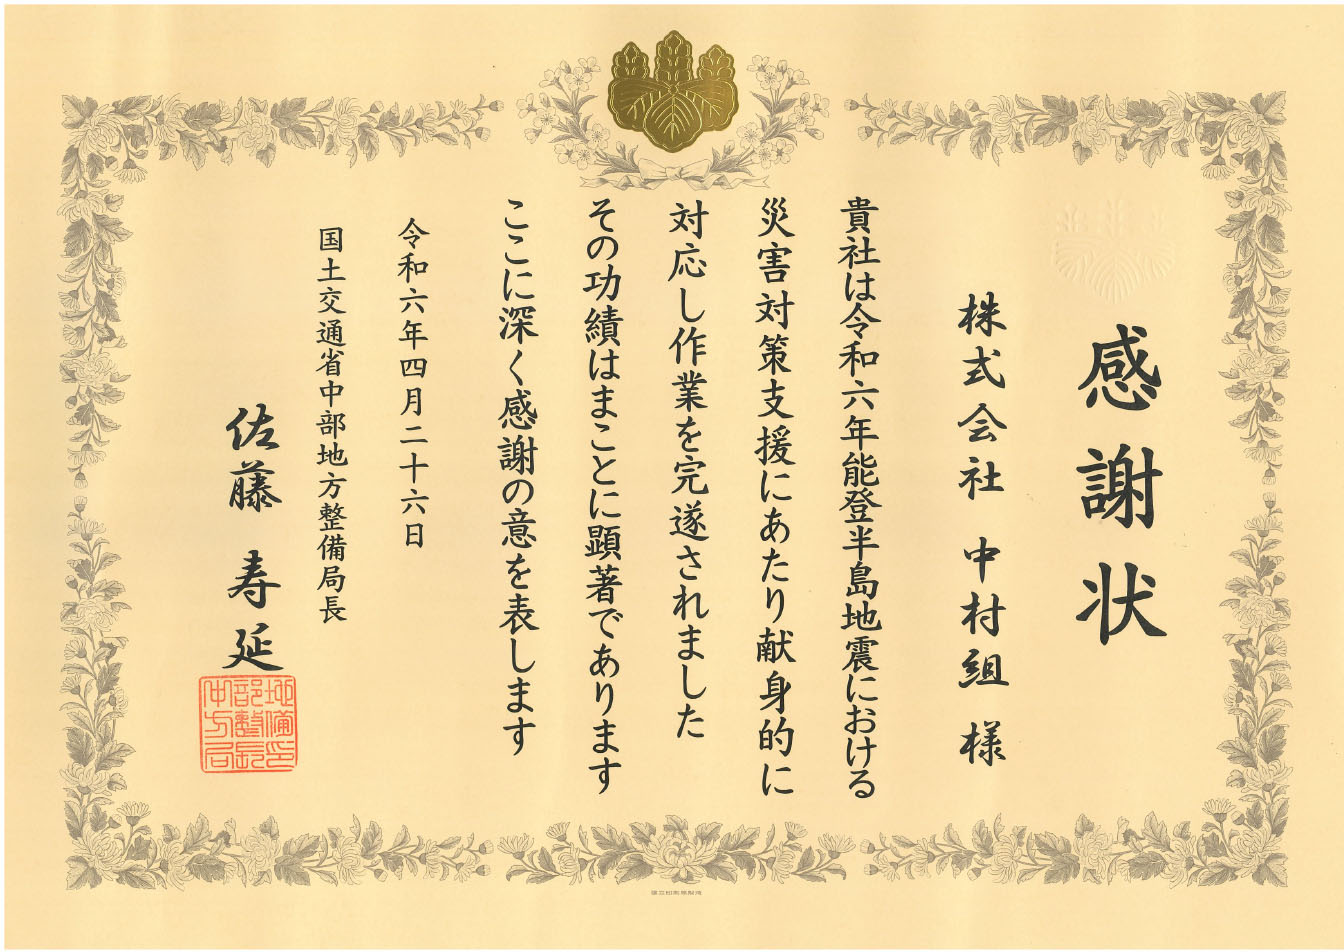 感謝状
株式会社 中村組 様
貴社は令和六年能登半島地震における
災害対策支援にあたり献身的に
対応し作業を完遂されました
その功績はまことに顕著であります
ここに深く感謝の意を表します
令和六年四月二十六日
国土交通省中部地方整備局長
佐藤 寿延